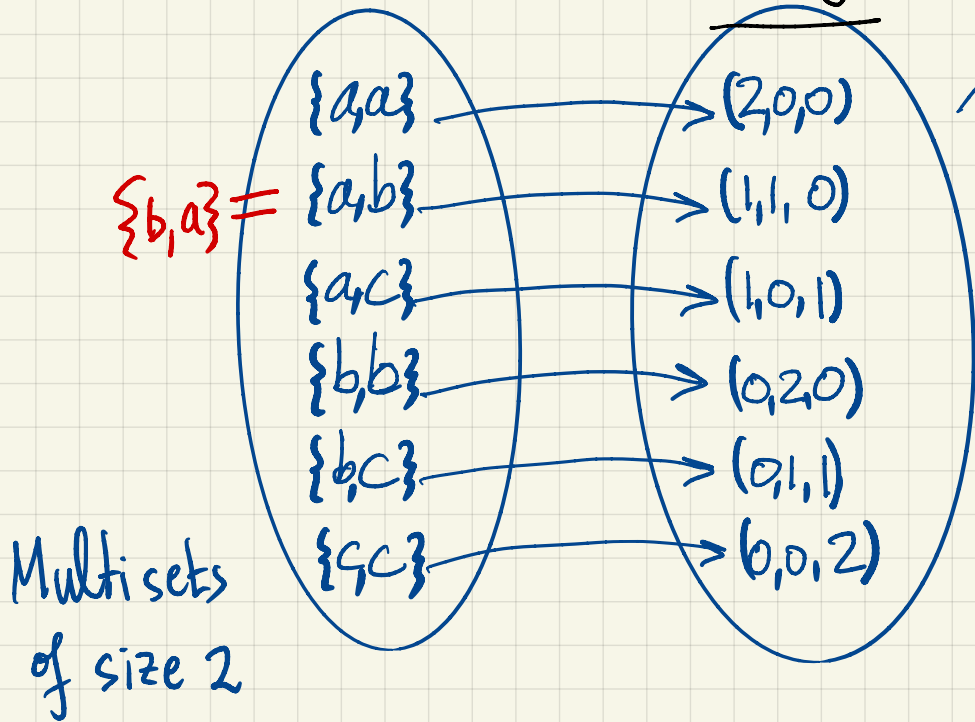 {a,a} (2,0,0)
{b,a} = {a,b} (1,1,0)
{a,c} (1,0,1)
{b,b} (0,2,0)
{b,c} (0,1,1)
{c,c} (0,0,2)
Multisets
of size 2